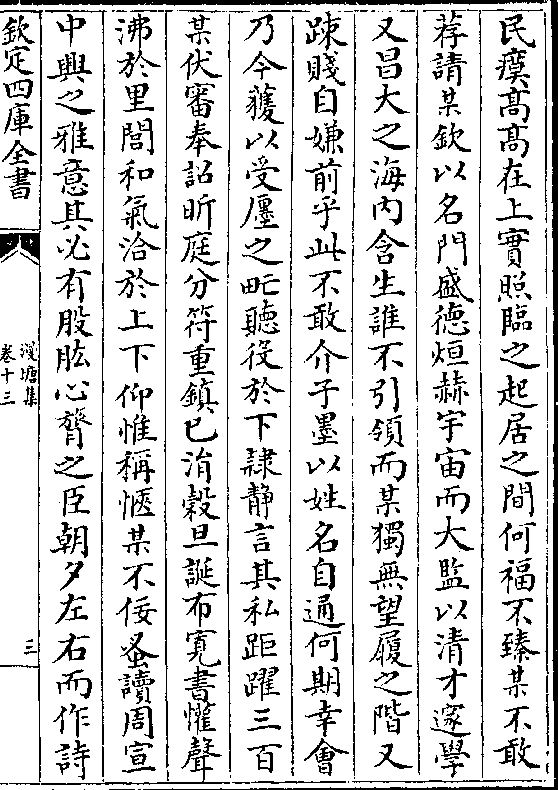 民瘼髙髙在上實照臨之起居之間何福不臻某不敢
荐請某欽以名門盛德烜赫宇宙而大監以清才邃學
又昌大之海内含生誰不引領而某獨無望履之階又
踈賤自嫌前乎此不敢介子墨以姓名自通何期幸會
乃今獲以受廛之甿聽役於下隷静言其私距躍三百
某伏審奉詔昕庭分符重鎮已涓穀旦誕布寛書懽聲
沸於里閭和氣洽於上下仰惟稱愜某不佞蚤讀周宣
中興之雅意其必有股肱心膂之臣朝夕左右而作詩
欽定四庫全書
漫塘集
卷十三
三